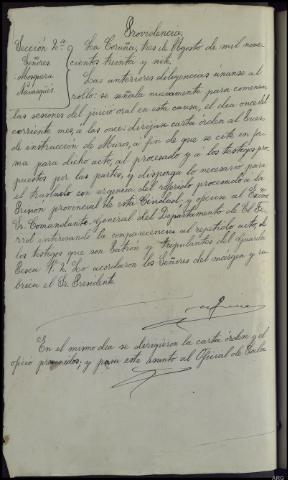 Providencia
Sección 2.ª
Señores
Mosquera
La Coruña, tres de Agosto de mil nove
cientos treinta y seis.
Las anteriores diligencias únanse al
rollo: se señala nuevamente para comenzar
las sesiones del juicio oral en esta causa, el día once del
corriente mes, a las once: diríjase carta orden al Juez
de instrucción de Muros, a fin de que se cite en for
ma para dicho acto, al procesado y a los testigos pro
puestos por las partes, y disponga lo necesario para
el traslado con urgencia del referido procesado a la
Prisión provincial de esta Ciudad, y ofíciese al Excmo
Sr. Comandante General del Departamento de El Fe
rrol interesando la comparecencia al repetido acto, de
los testigos que son Patrón y tripulantes del Guarda
Pesca Lo acordaron los Señores del margen y ru
brica el Sr. Presidente.
En el mismo día se dirigieron la carta orden y el
oficio prevenidos; y pasa este asunto al Oficial de Sala
ARG